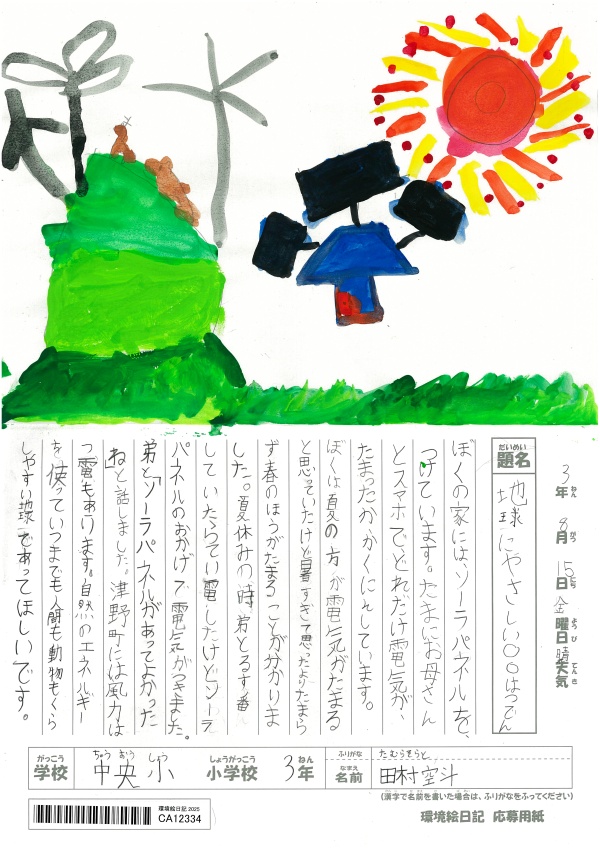 3年 8月 15日 金曜日 晴天気
ねん がつ にち ようび てんき
だいめい
題名
地球にやさしい〇〇はつでん
ぼくの家には、ソーラパネルを、
つけています。たまにお母さん
とスマホでどれだけ電気が、
たまったかかくにとしています。
ぼくは夏の方が電気がたまる
と思っていたけど暑すぎて思ったよりたまら
ず春のほうがたまることが分かりま
した。夏休みの時、弟とるす番
していたらてい電したけどソーラ
パネルのおかげで電気がつきました。
弟と「ソーラパネルがあってよかった
ね」と話しました。津野町には風力は
つ電もあります。自然のエネルギー
を使っていつまでも人間も動物もくら
しやすい地球であってほしいです。
がっこう ちゅうおうしょう しょうがっこう ねん ふりがな たむらそらと
学校 中央小 小学校 3年 なまえ 名前 田村空斗
(漢字で名前を書いた場合は、ふりがなをふってください)
環境絵日記 応募用紙
環境絵日記 2025
CA12334